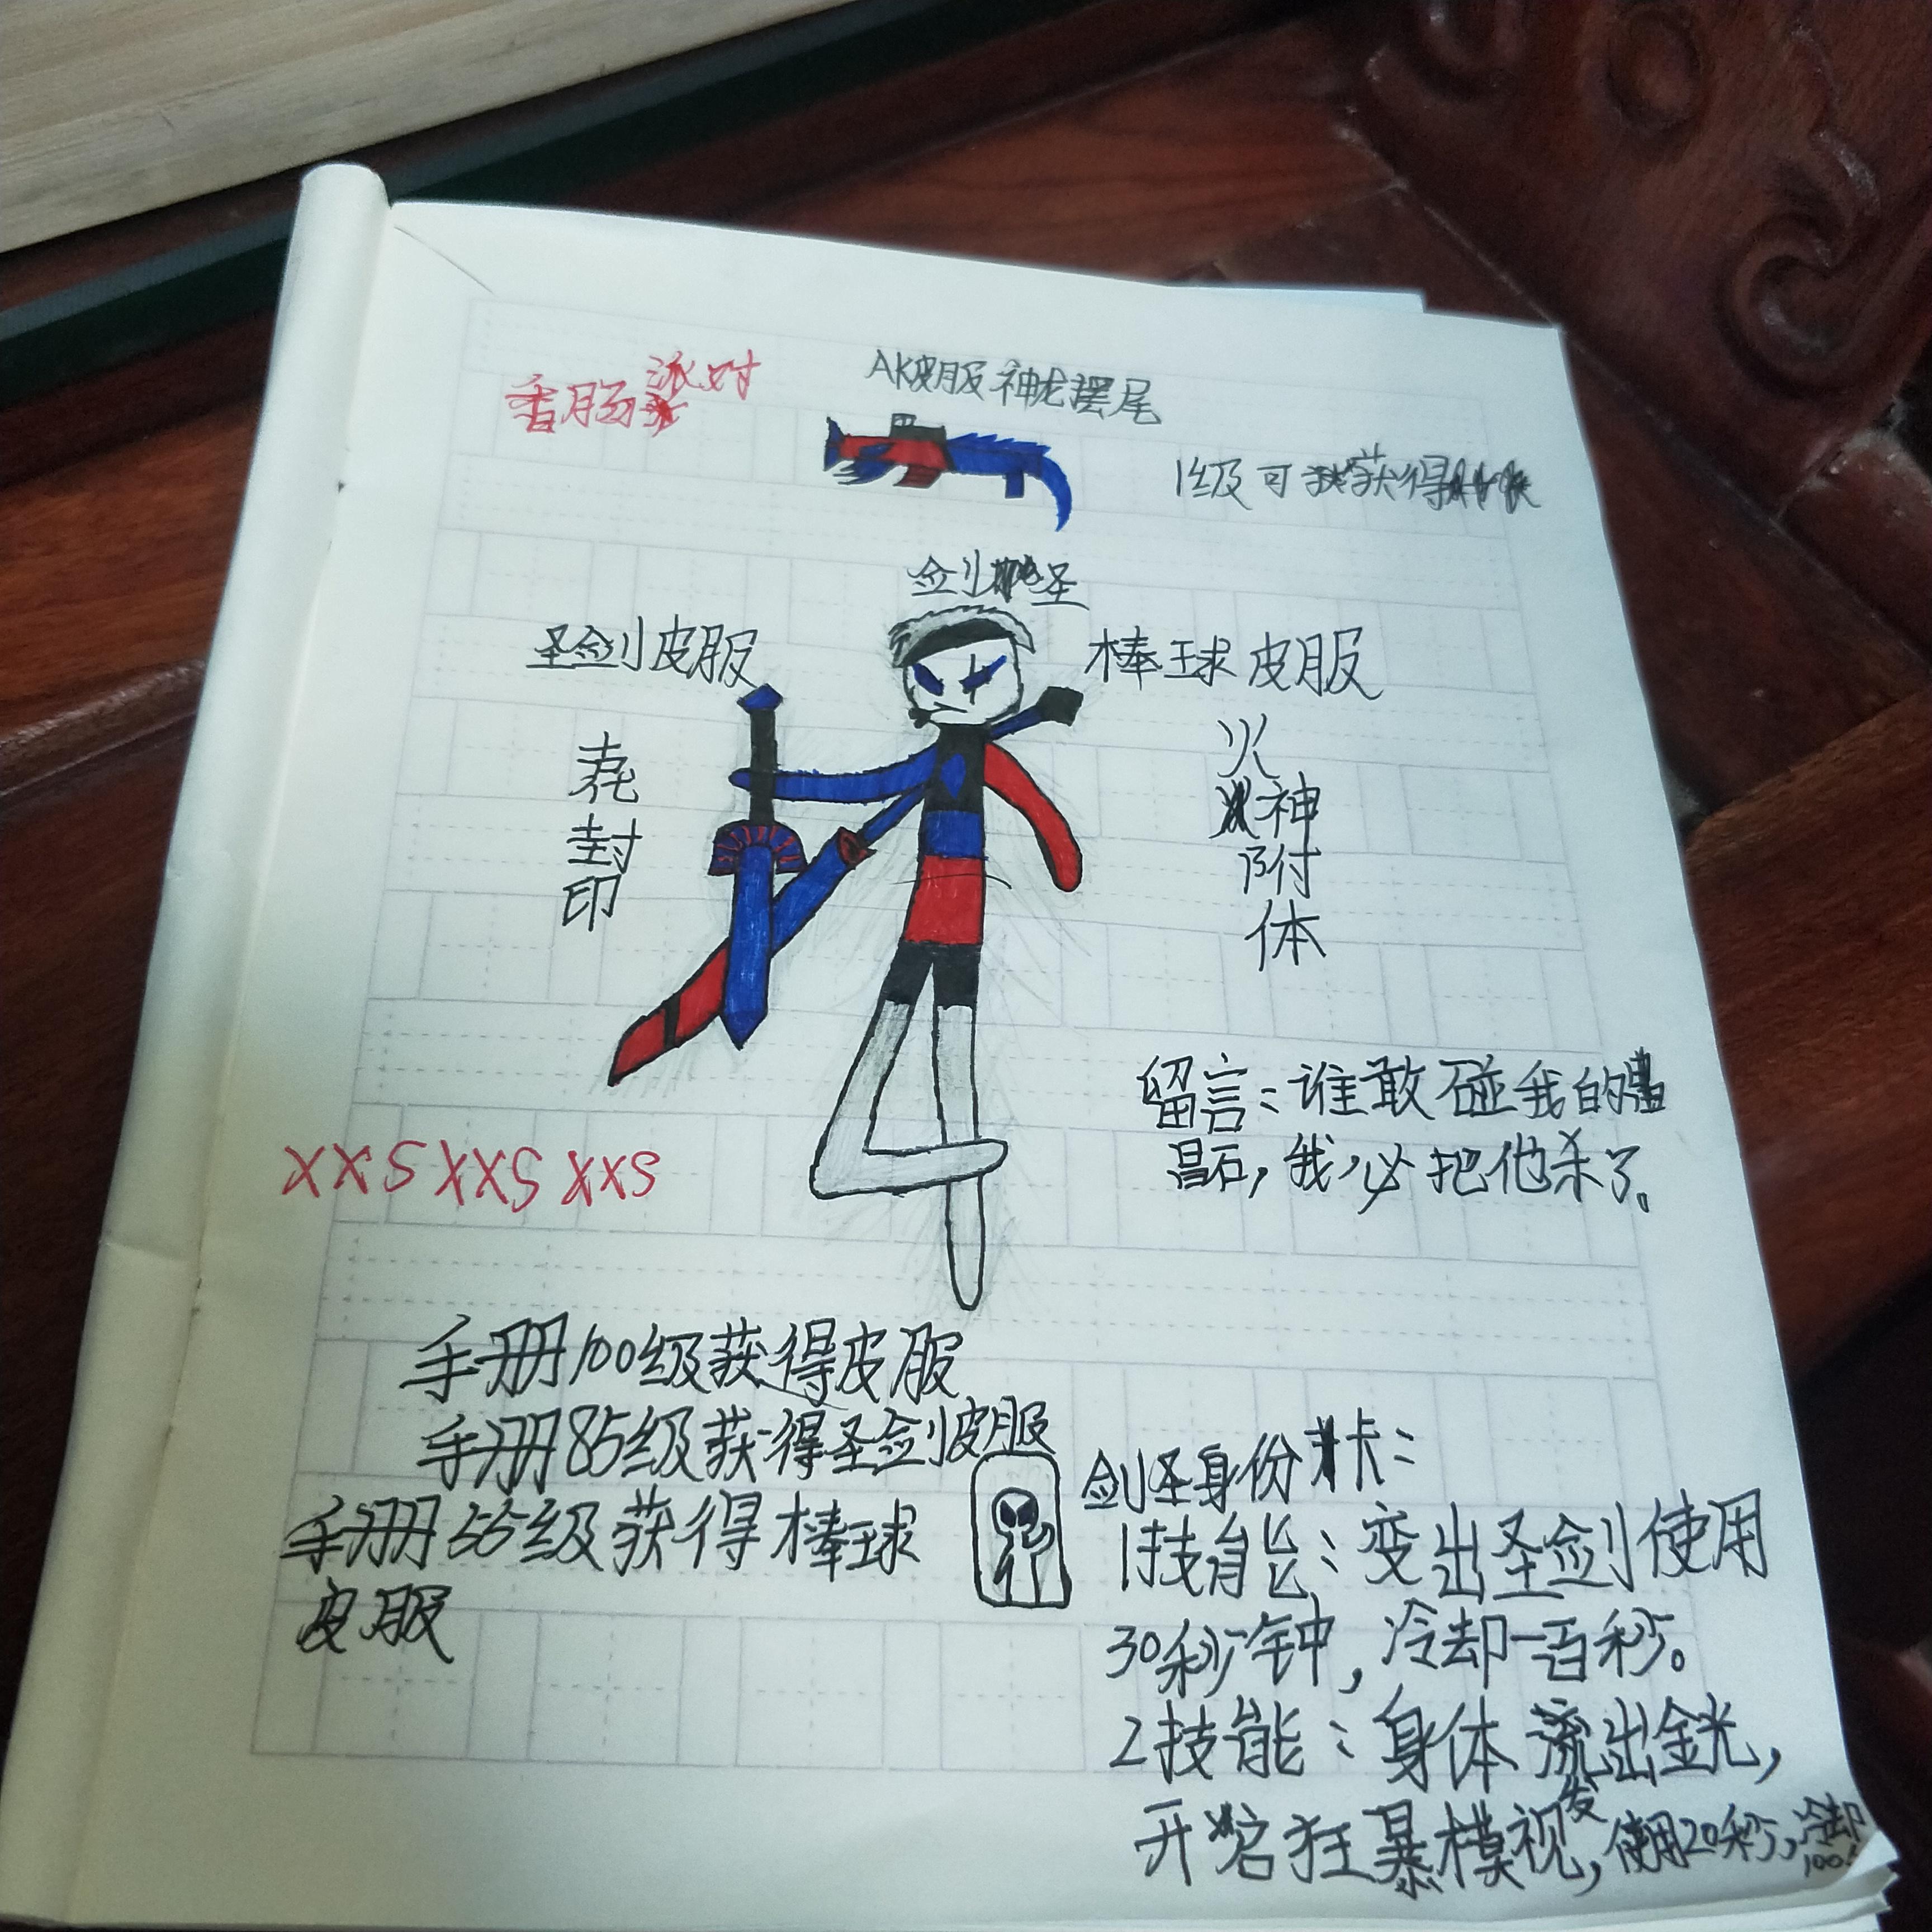 香肠派对
AK皮服神龙摆尾
1级可获获得
剑圣
圣剑皮服
棒球皮服
封
印
火
神
附
体
留言：谁敢碰我的
，我必把他杀了。
XXSXXSXXS
手册100级获得皮服
手册85级获得圣剑皮服
手册55级获得棒球
皮服
剑圣身份卡：
1技能：变出圣剑使用
30秒钟，冷却一百秒。
2技能：身体流出金光，
开启狂暴模视，使用20秒，冷却
100